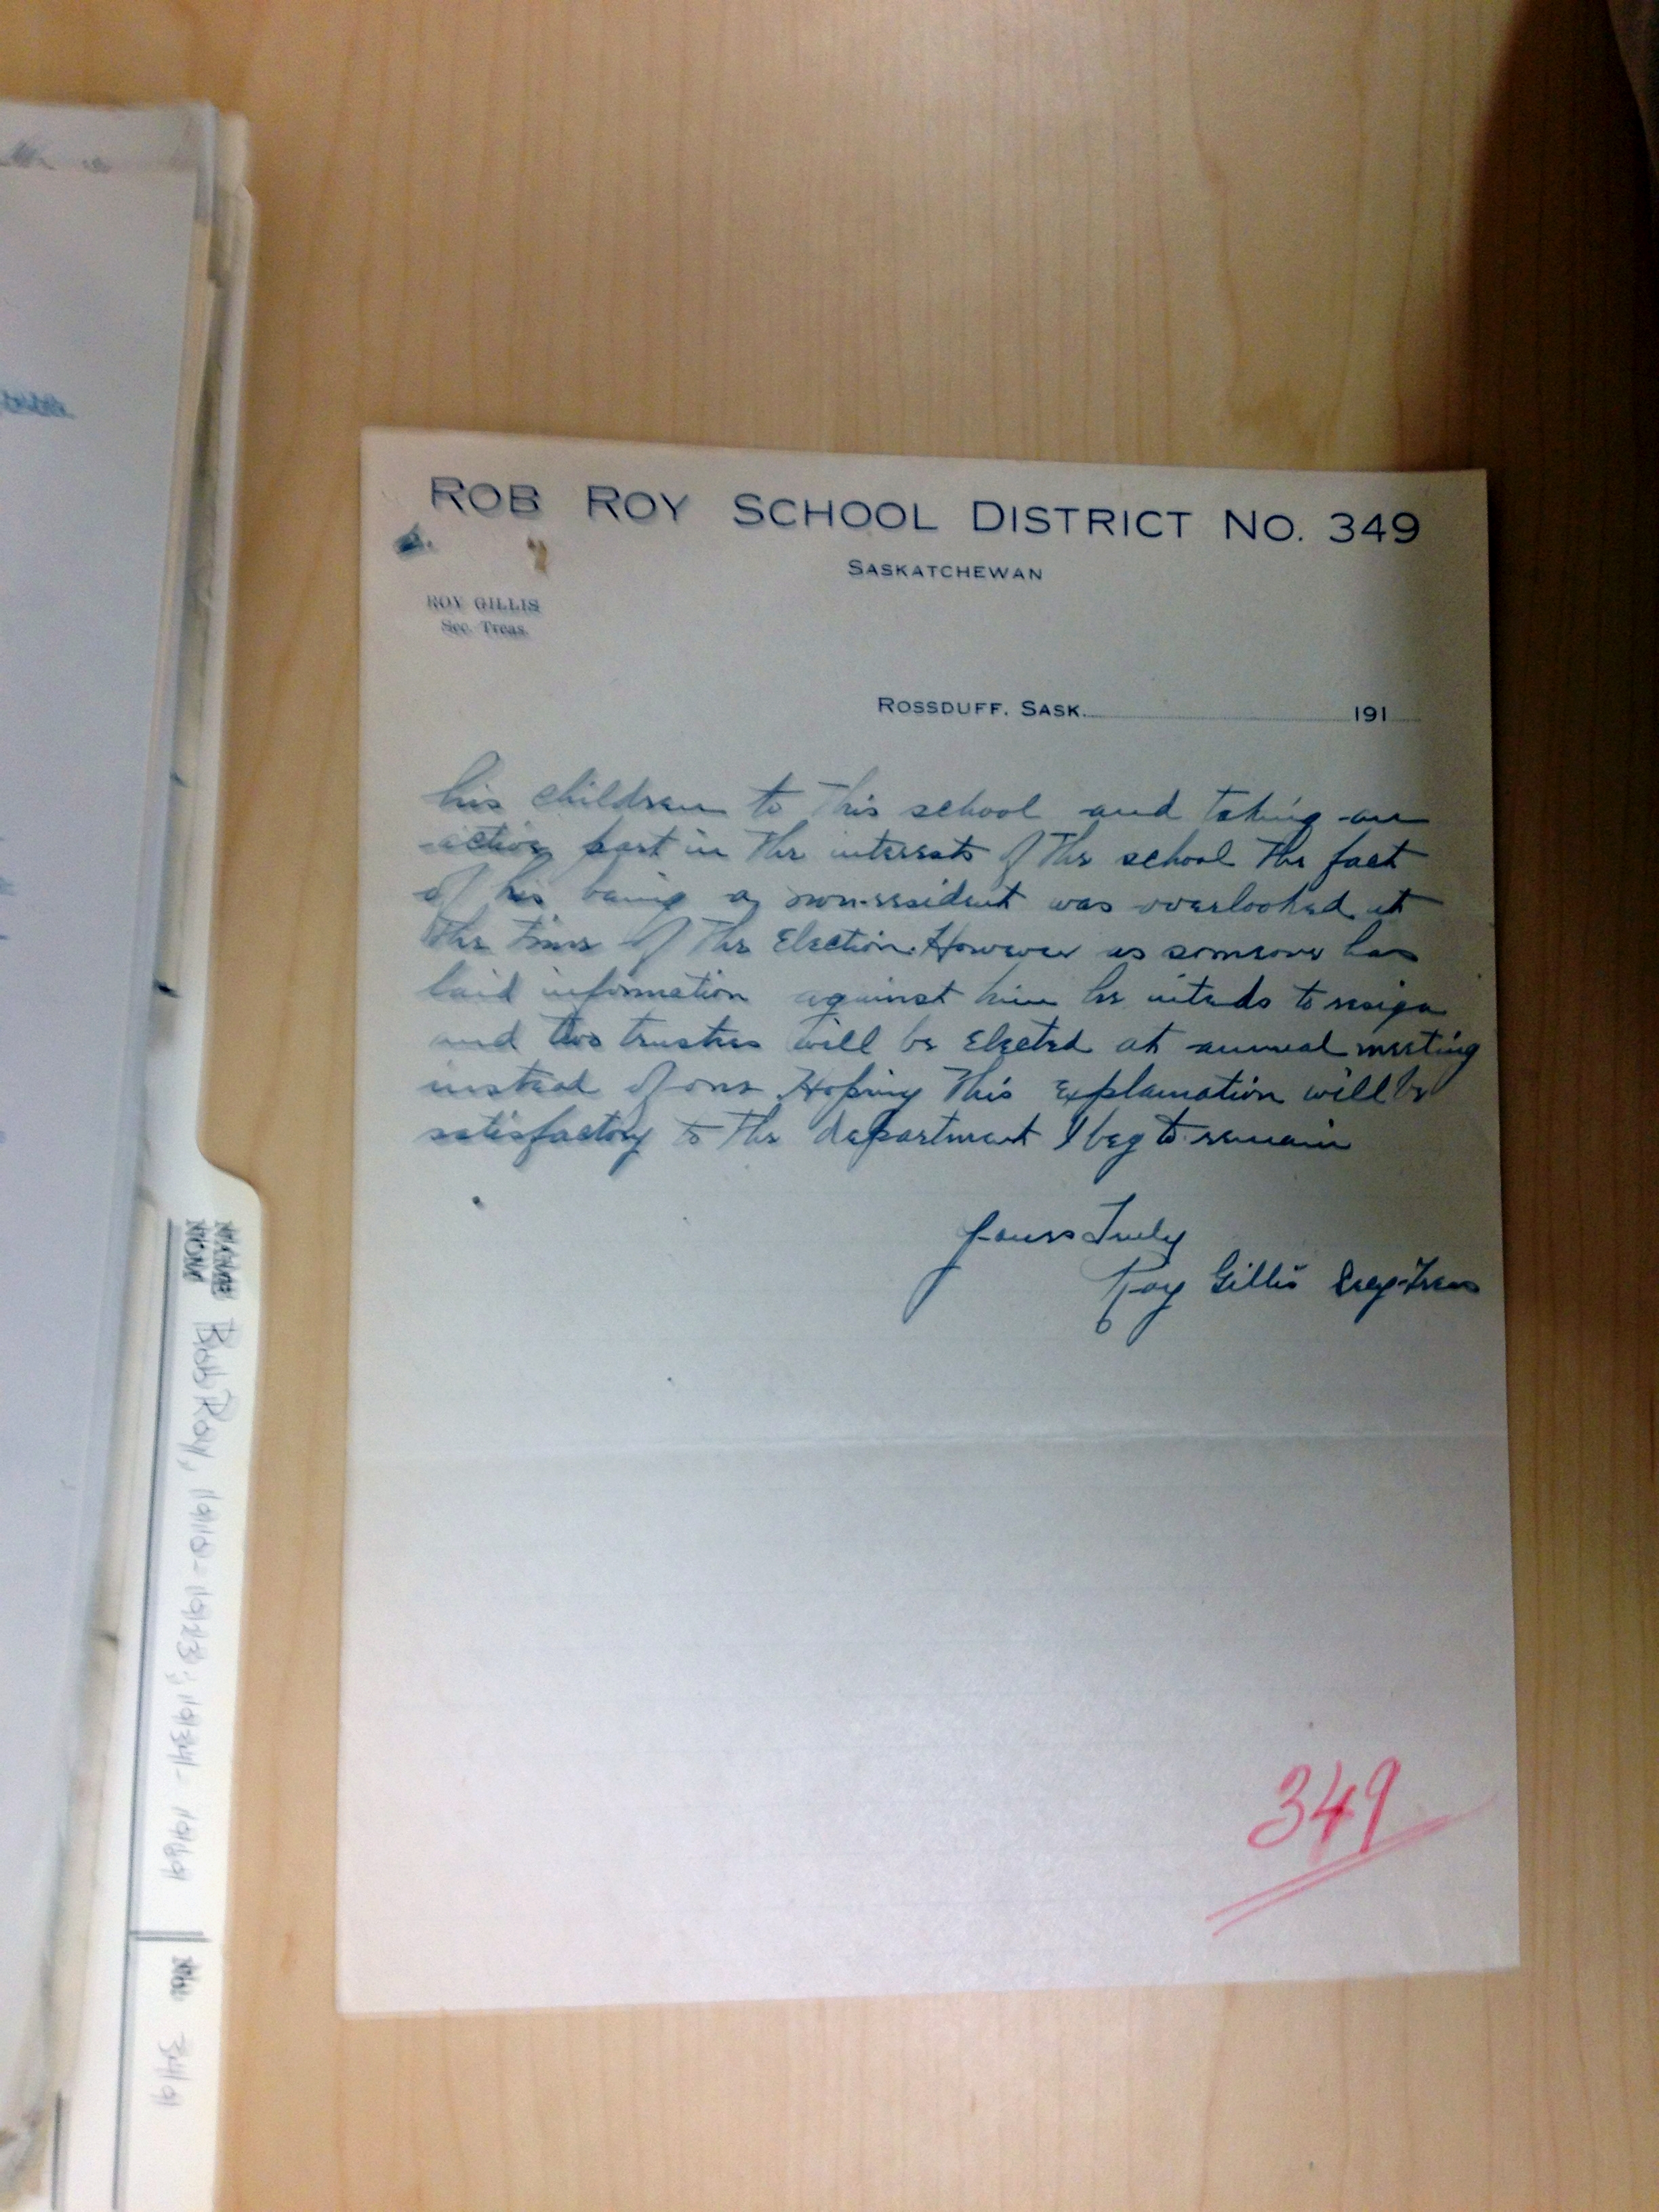 ROB ROY SCHOOL DISTRICT NO. 349
SASKATCHEWAN
ROY GILLIS
Sec. Treas.
ROSSDUFF, SASK. 191
his children to this school and taking an
active part in the interests of the school the fact
of his being a non-resident was overlooked at
the time of the Election. However as someone has
laid information against him he intends to resign
and two trustees will be Elected at annual meeting
instead of one. Hoping this explanation will be
satisfactory to the department I beg to remain
Yours Truly
Roy Gillis Secy-Treas
349
NAME
NOM Rob Roy, 1910-1923; 1934-1969
No 349